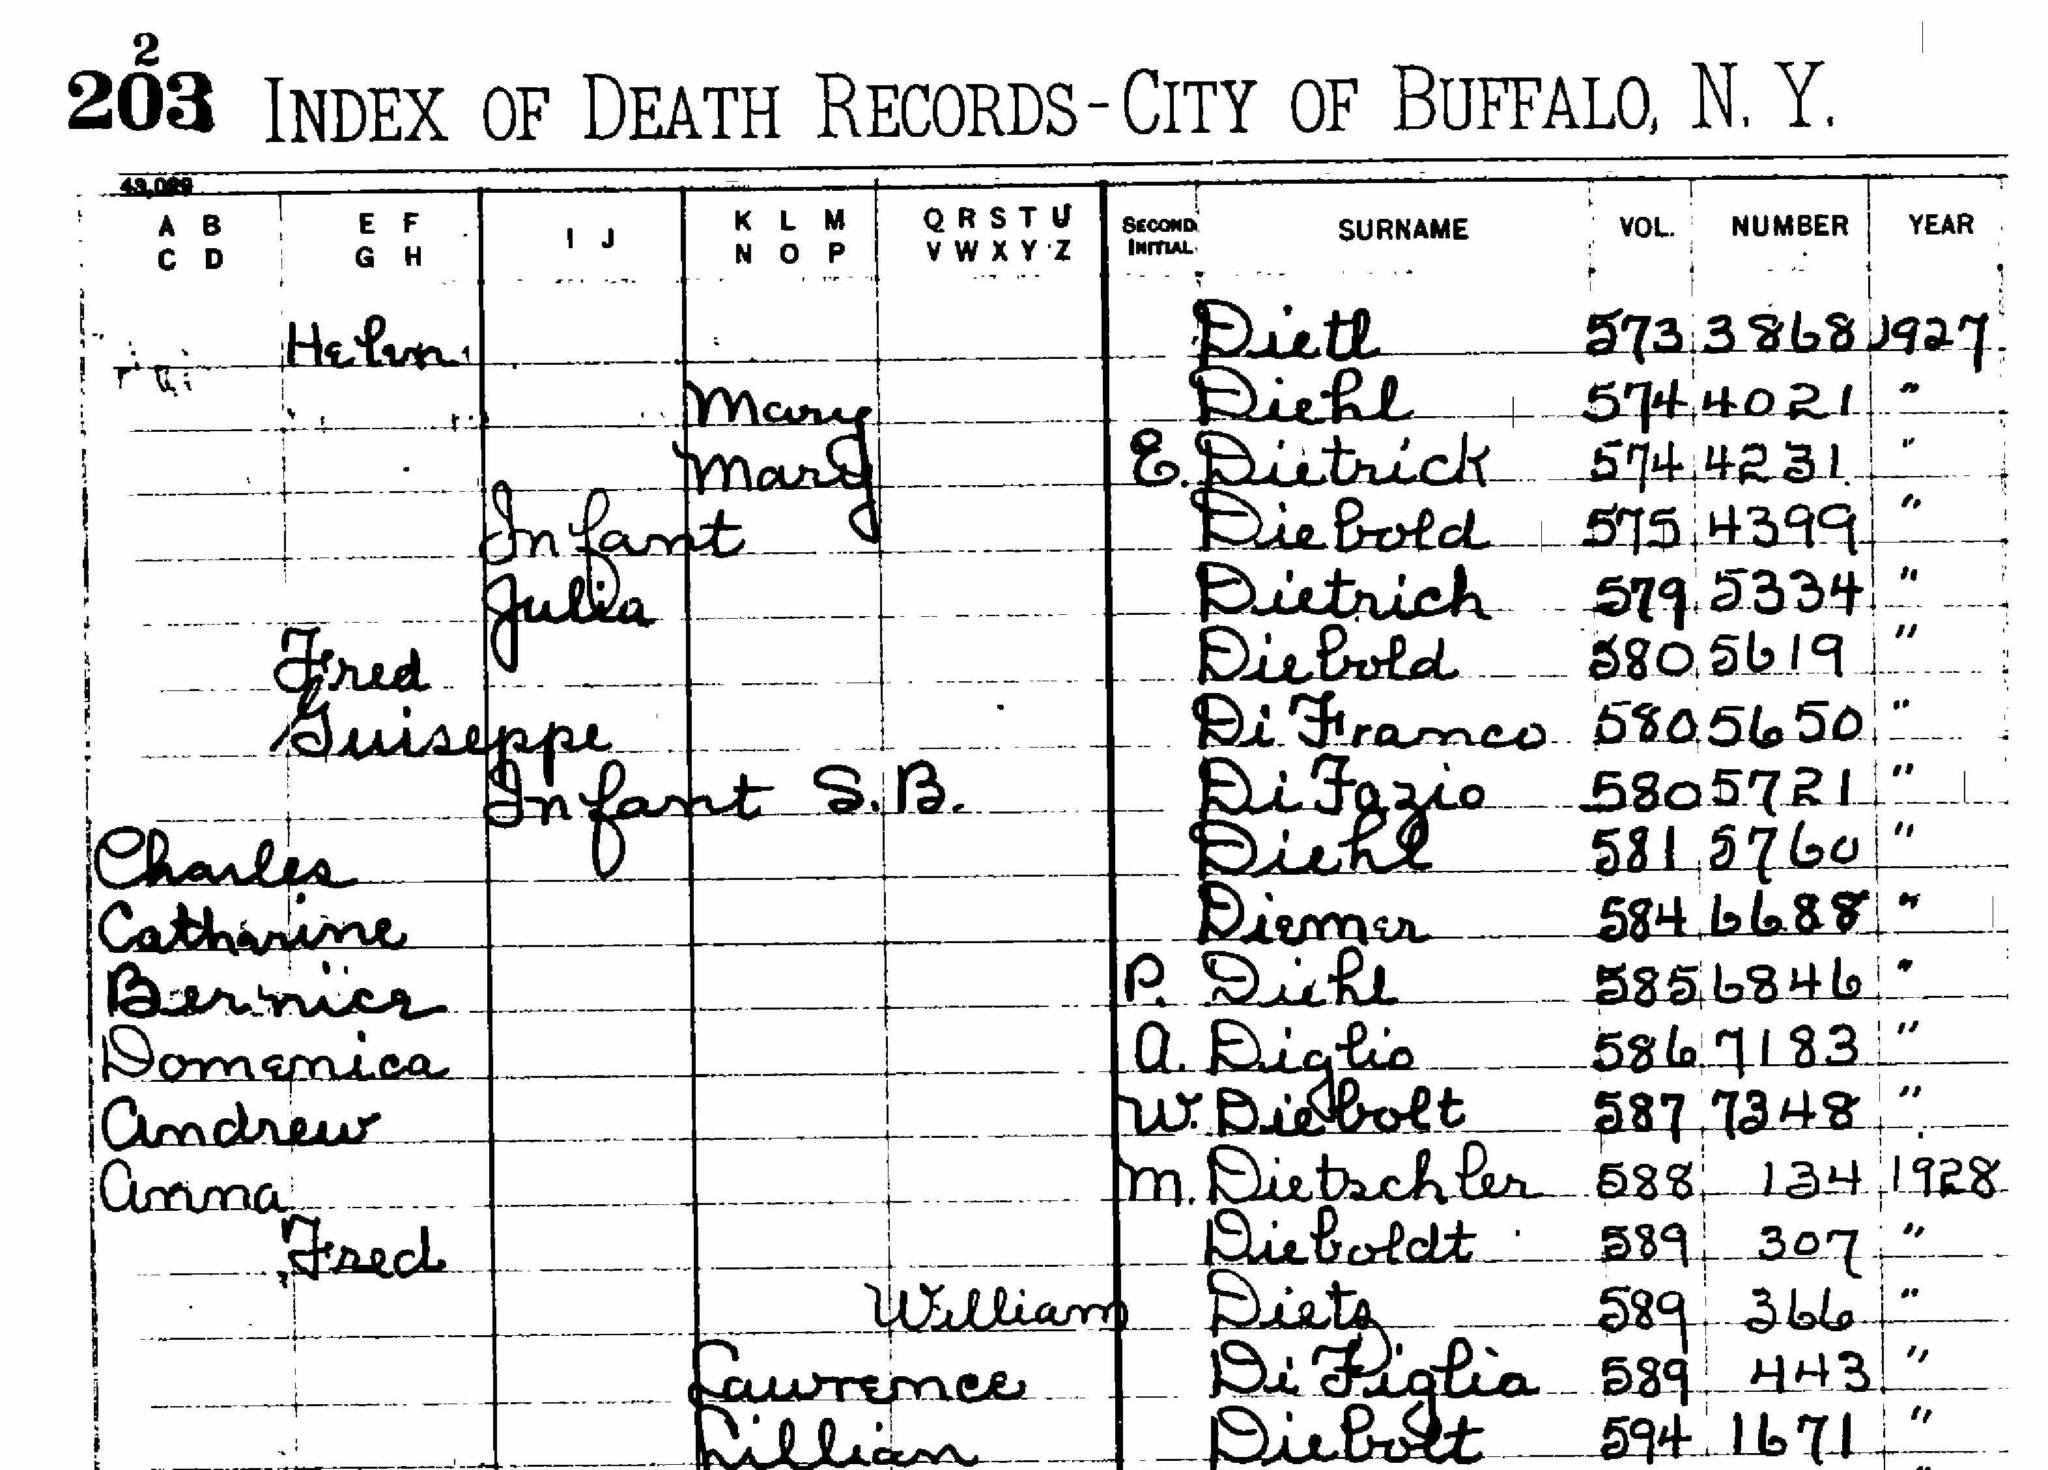 2
203 INDEX OF DEATH RECORDS - CITY OF BUFFALO, N. Y.
43,099
A B C D E F G H I J K L M N O P Q R S T U V W X Y Z SECOND INITIAL SURNAME VOL. NUMBER YEAR
Helen Dietl 573 3868 1927
Mary Diehl 574 4021 "
Mary E. Dietrick 574 4231 "
Infant Diebold 575 4399 "
Julia Dietrich 579 5334 "
Fred Diebold 580 5619 "
Guiseppe Di Franco 580 5650 "
Infant S. B. Di Fazio 580 5721 "
Charles Diehl 581 5760 "
Catharine Diemer 584 6688 "
Bernice P. Diehl 585 6846 "
Domenica A. Diglio 586 7183 "
Andrew W. Diebolt 587 7348 "
Anna M. Dietschler 588 134 1928
Fred Dieboldt 589 307 "
William Diets 589 366 "
Lawrence Di Figlia 589 443 "
Lillian Diebolt 594 1671 "